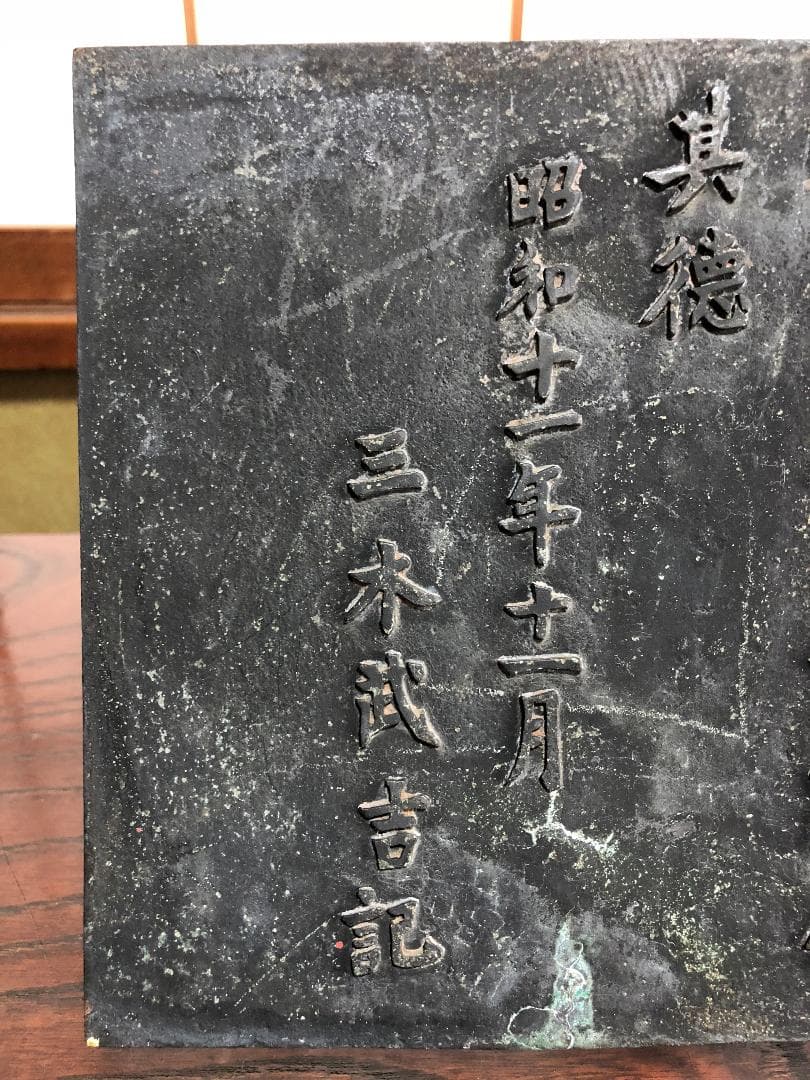 其德
昭和十一年十一月
三木武吉記